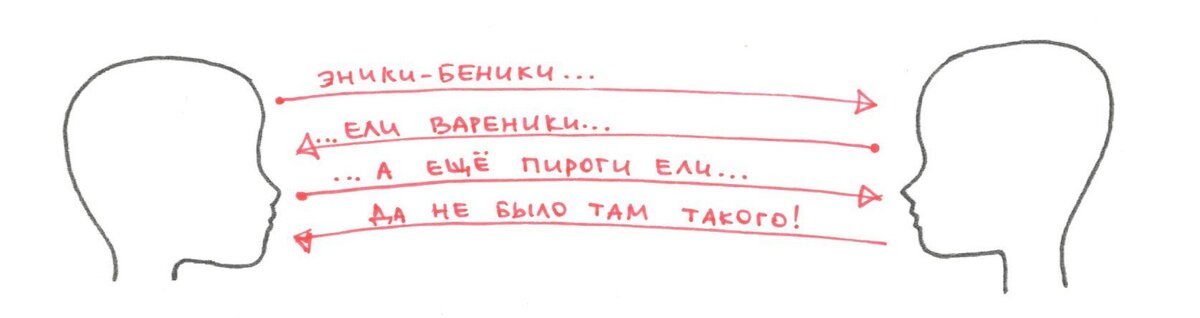 ЭНИКИ-БЕНИКИ...
...ЕЛИ ВАРЕНИКИ...
...А ЕЩЁ ПИРОГИ ЕЛИ...
ДА НЕ БЫЛО ТАМ ТАКОГО!